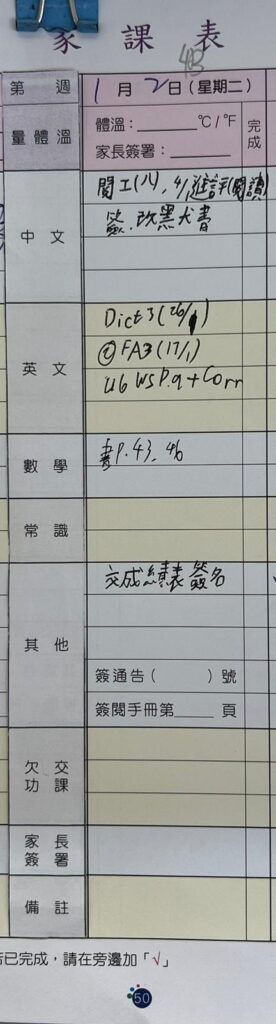 家課表
4B
第 週
1月2日(星期二)
量體溫
體溫：______°C/°F
家長簽署：______
完成
中文
閱工(八), 4/1進評(閱讀)
簽、改黑犬書
英文
Dict 3 (26/1)
© FA3 (17/1)
U6 WS P.9 + Corr
數學
書P.43, 46
常識
其他
交成績表簽名
簽通告( )號
簽閱手冊第____頁
欠交功課
家長簽署
備註
若已完成，請在旁邊加「√」
50